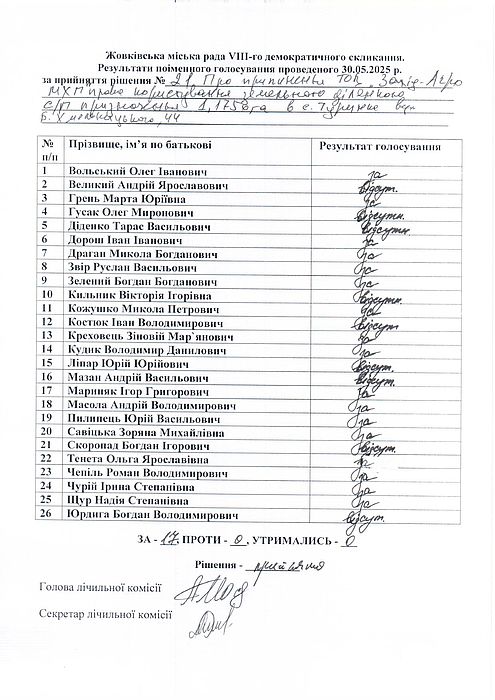 Жовківська міська рада VIII-го демократичного скликання.
Результати поіменного голосування проведеного 30.05.2025 р.
за прийняття рішення № 21 Про припинення ТОВ „Захід-Агро
МХП права користування земельною ділянкою
с/г призначення 1,1758 га в с. Туринка вул
Б. Хмельницького, 44
№ п/п Прізвище, ім’я по батькові Результат голосування
1 Вольський Олег Іванович за
2 Великий Андрій Ярославович відсут.
3 Грень Марта Юріївна за
4 Гусак Олег Миронович відсутн.
5 Діденко Тарас Васильович відсутн.
6 Дорош Іван Іванович за
7 Драган Микола Богданович за
8 Звір Руслан Васильович за
9 Зелений Богдан Богданович за
10 Кильник Вікторія Ігорівна відсутн.
11 Кожушко Микола Петрович за
12 Костюк Іван Володимирович відсут
13 Креховець Зіновій Мар`янович за
14 Кудик Володимир Данилович за
15 Ліпар Юрій Юрійович відсут.
16 Мазан Андрій Васильович відсут.
17 Мариняк Ігор Григорович за
18 Масола Андрій Володимирович за
19 Пилипець Юрій Васильович за
20 Савіцька Зоряна Михайлівна за
21 Скоропад Богдан Ігорович відсут.
22 Тенета Ольга Ярославівна за
23 Чепіль Роман Володимирович за
24 Чурій Ірина Степанівна за
25 Щур Надія Степанівна за
26 Юрдига Богдан Володимирович відсут.
ЗА - 17, ПРОТИ - 0, УТРИМАЛИСЬ - 0
Рішення - прийнято
Голова лічильної комісії
Секретар лічильної комісії